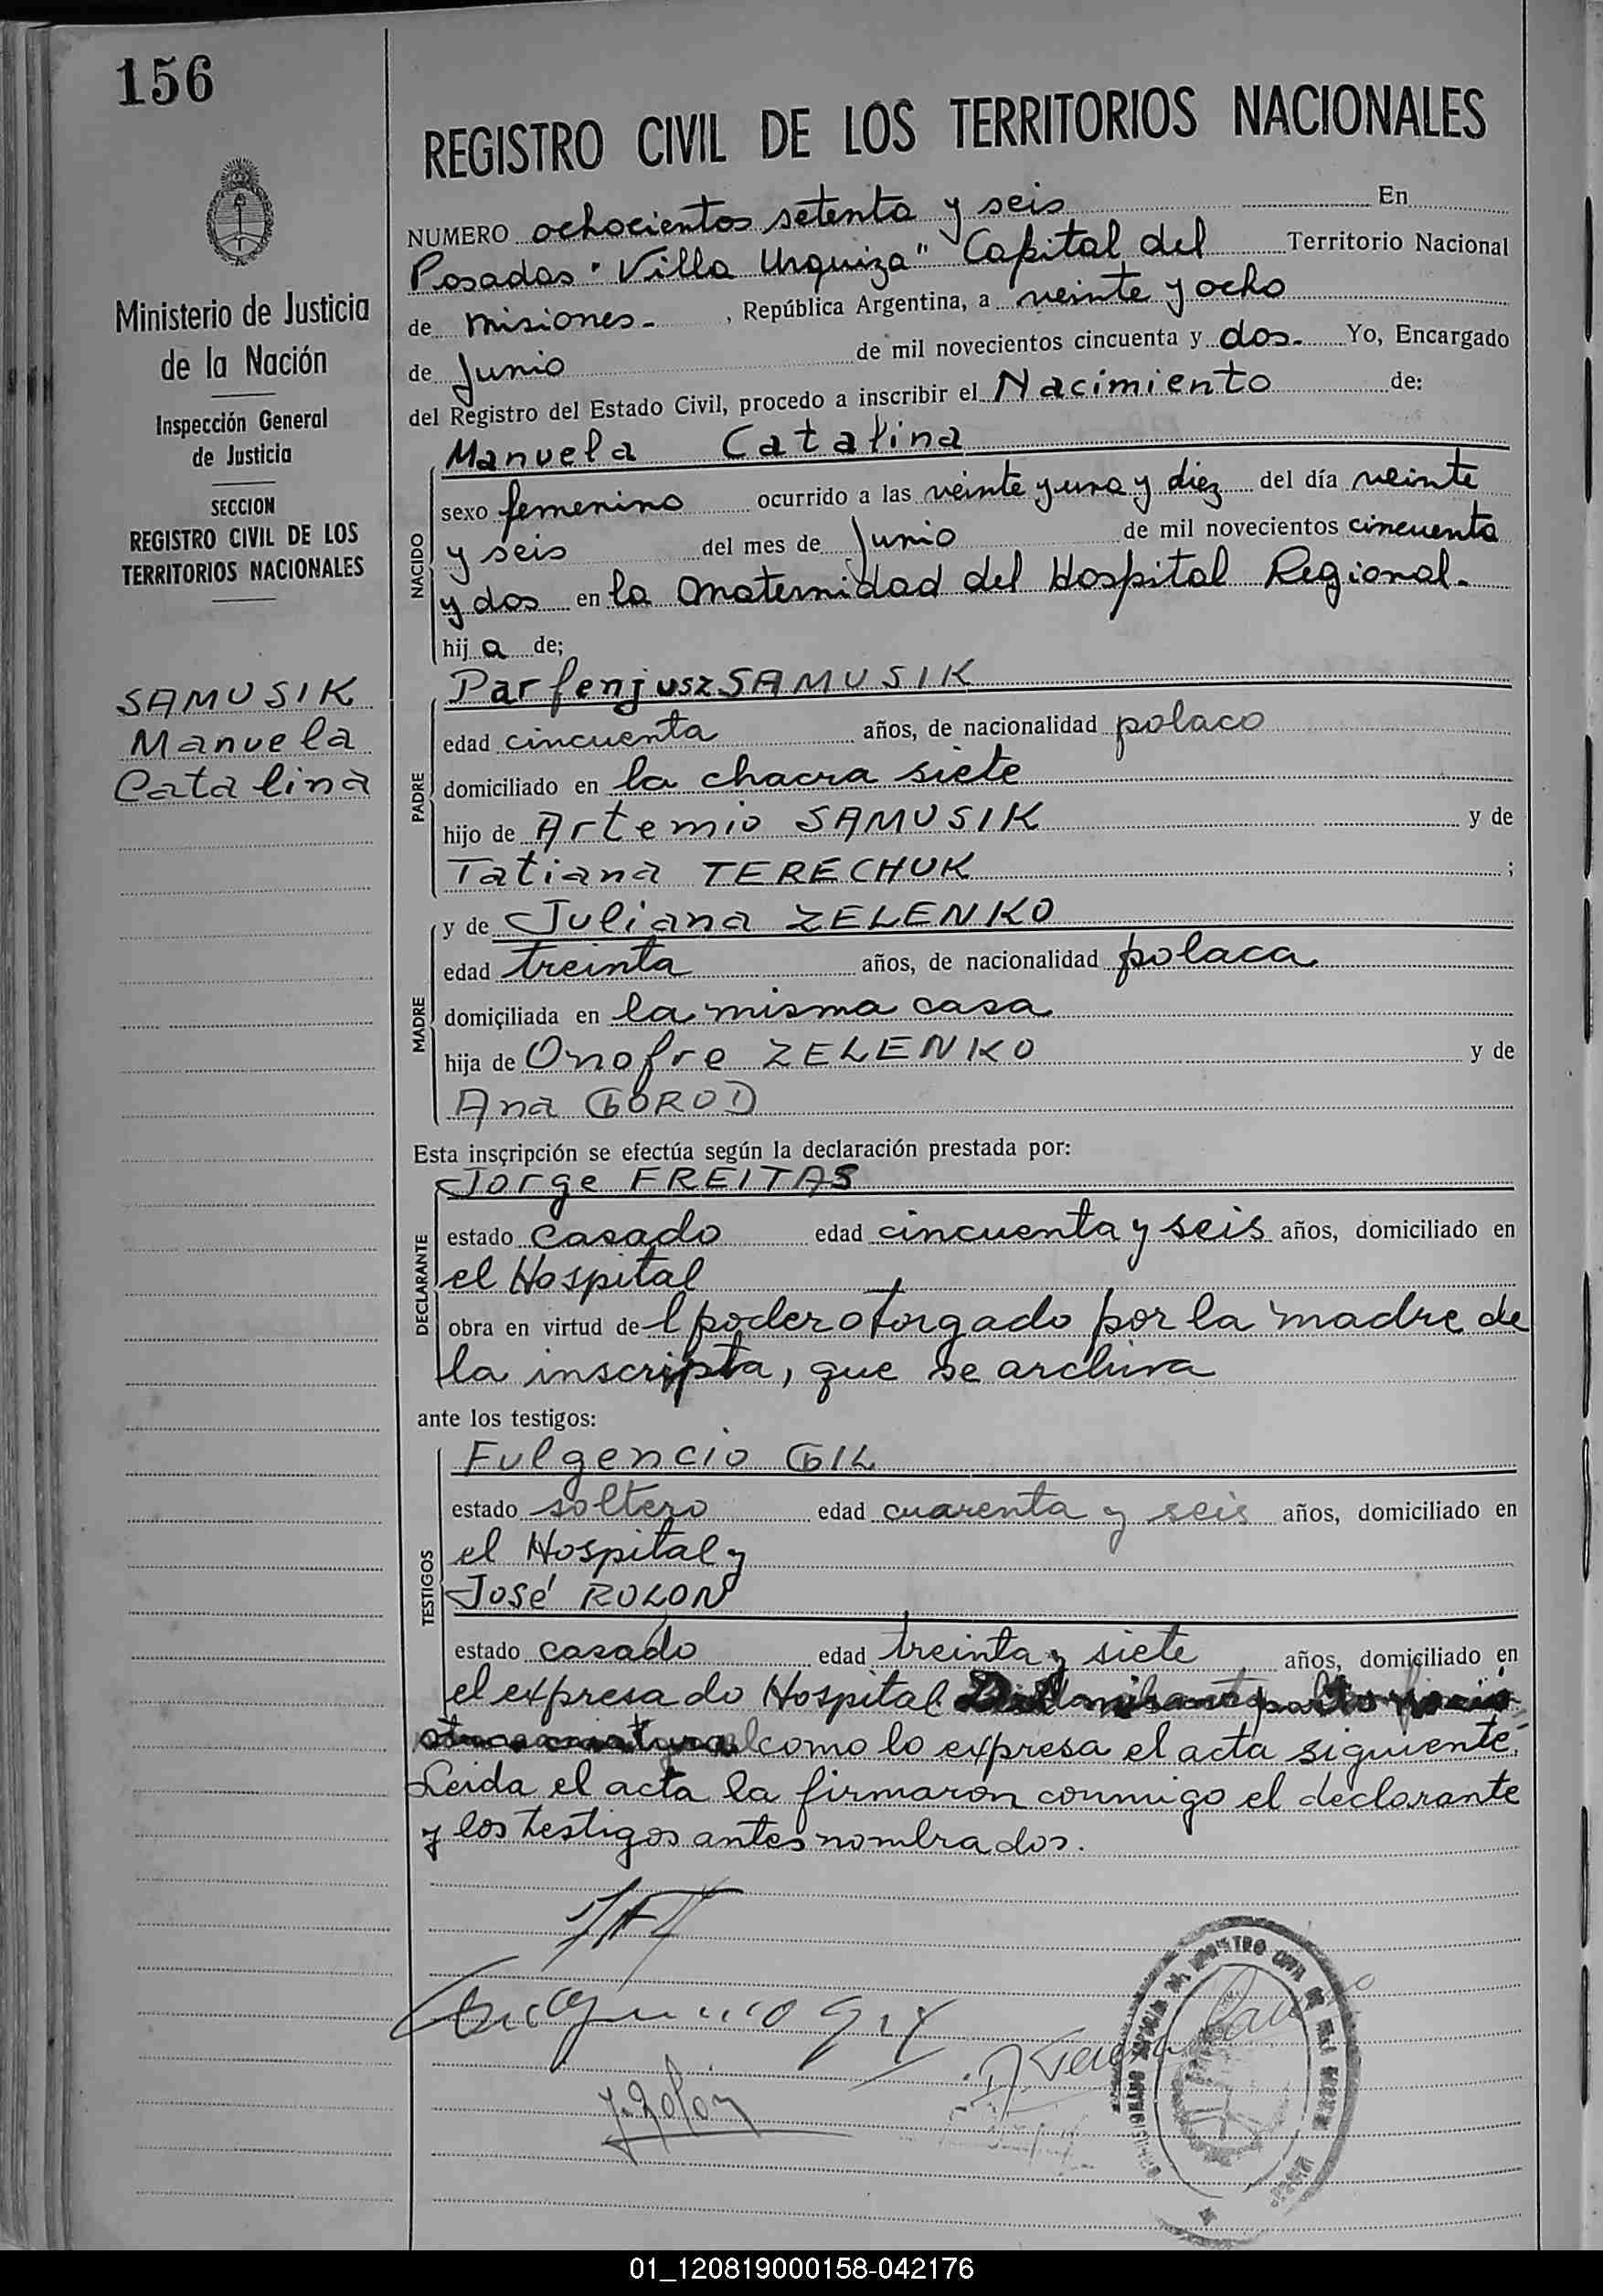 156
REGISTRO CIVIL DE LOS TERRITORIOS NACIONALES
NUMERO ochocientos setenta y seis En
Posadas "Villa Urquiza" Capital del Territorio Nacional
de Misiones- , República Argentina, a veinte y ocho
de Junio de mil novecientos cincuenta y dos- Yo, Encargado
del Registro del Estado Civil, procedo a inscribir el Nacimiento de:
Ministerio de Justicia
de la Nación
Inspección General
de Justicia
SECCION
REGISTRO CIVIL DE LOS
TERRITORIOS NACIONALES
SAMUSIK
Manuela
Catalina
NACIDO
Manuela Catalina
sexo femenino ocurrido a las veinte y una y diez del día veinte
y seis del mes de Junio de mil novecientos cincuenta
y dos en la Maternidad del Hospital Regional-
hij a de;
PADRE
Parfenjusz SAMUSIK
edad cincuenta años, de nacionalidad polaco
domiciliado en la chacra siete
hijo de Artemio SAMUSIK y de
Tatiana TERECHUK ;
MADRE
y de Juliana ZELENKO
edad treinta años, de nacionalidad polaca
domiciliada en la misma casa
hija de Onofre ZELENKO y de
Ana GOROD
Esta inscripción se efectúa según la declaración prestada por:
DECLARANTE
Jorge FREITAS
estado casado edad cincuenta y seis años, domiciliado en
el Hospital
obra en virtud de l poder otorgado por la madre de
la inscripta, que se archiva
ante los testigos:
TESTIGOS
Fulgencio GIL
estado soltero edad cuarenta y seis años, domiciliado en
el Hospital y
José ROLON
estado casado edad treinta y siete años, domiciliado en
el expresado Hospital
como lo expresa el acta siguiente.
Leida el acta la firmaron conmigo el declarante
y los testigos antes nombrados.
J. Rolón
01_120819000158-042176